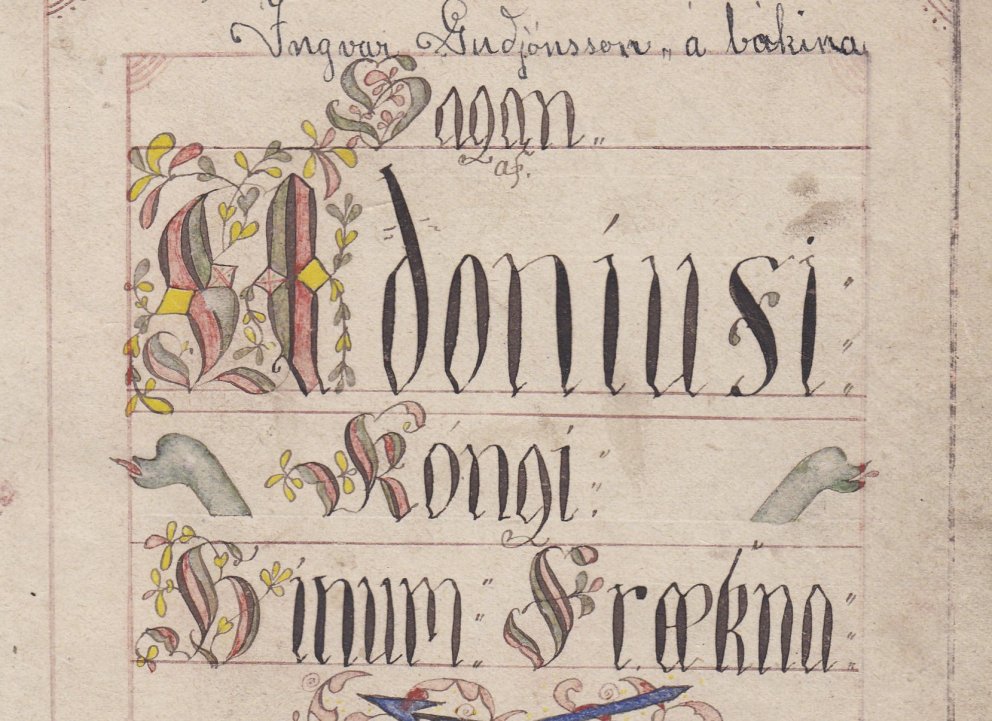 Ingvar Guðjónsson á bókina
Sagan
af.
Adoniusi
Kóngi
Hinum Frækna